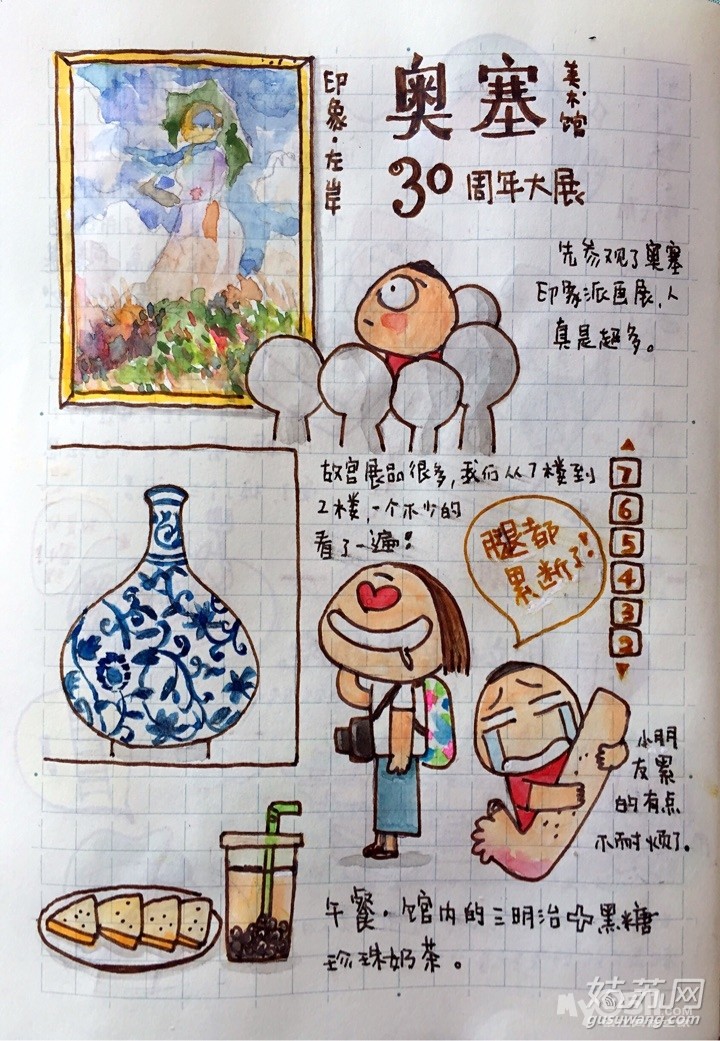 印象·左岸
奥塞
美术馆
30周年大展
先参观了奥塞
印象派画展,人
真是超多。
故宫展品很多,我们从7楼到
2楼,一个不少的
看了一遍!
7
6
5
4
3
2
腿都
累断了!
小朋
友累
的有点
不耐烦了。
午餐·馆内的三明治+黑糖
珍珠奶茶。
姑苏网
gusuwang.com